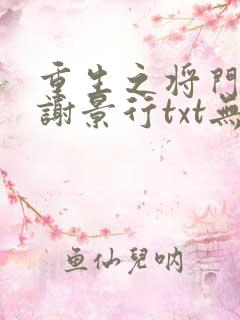 重生之将門
謝景行txt無
鱼仙兒呐